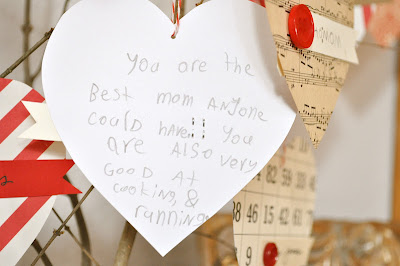 You are the
Best mom Anyone
could have!! You
are Also very
GooD At
cooking, &
running
2
82
59
38 42 15
9